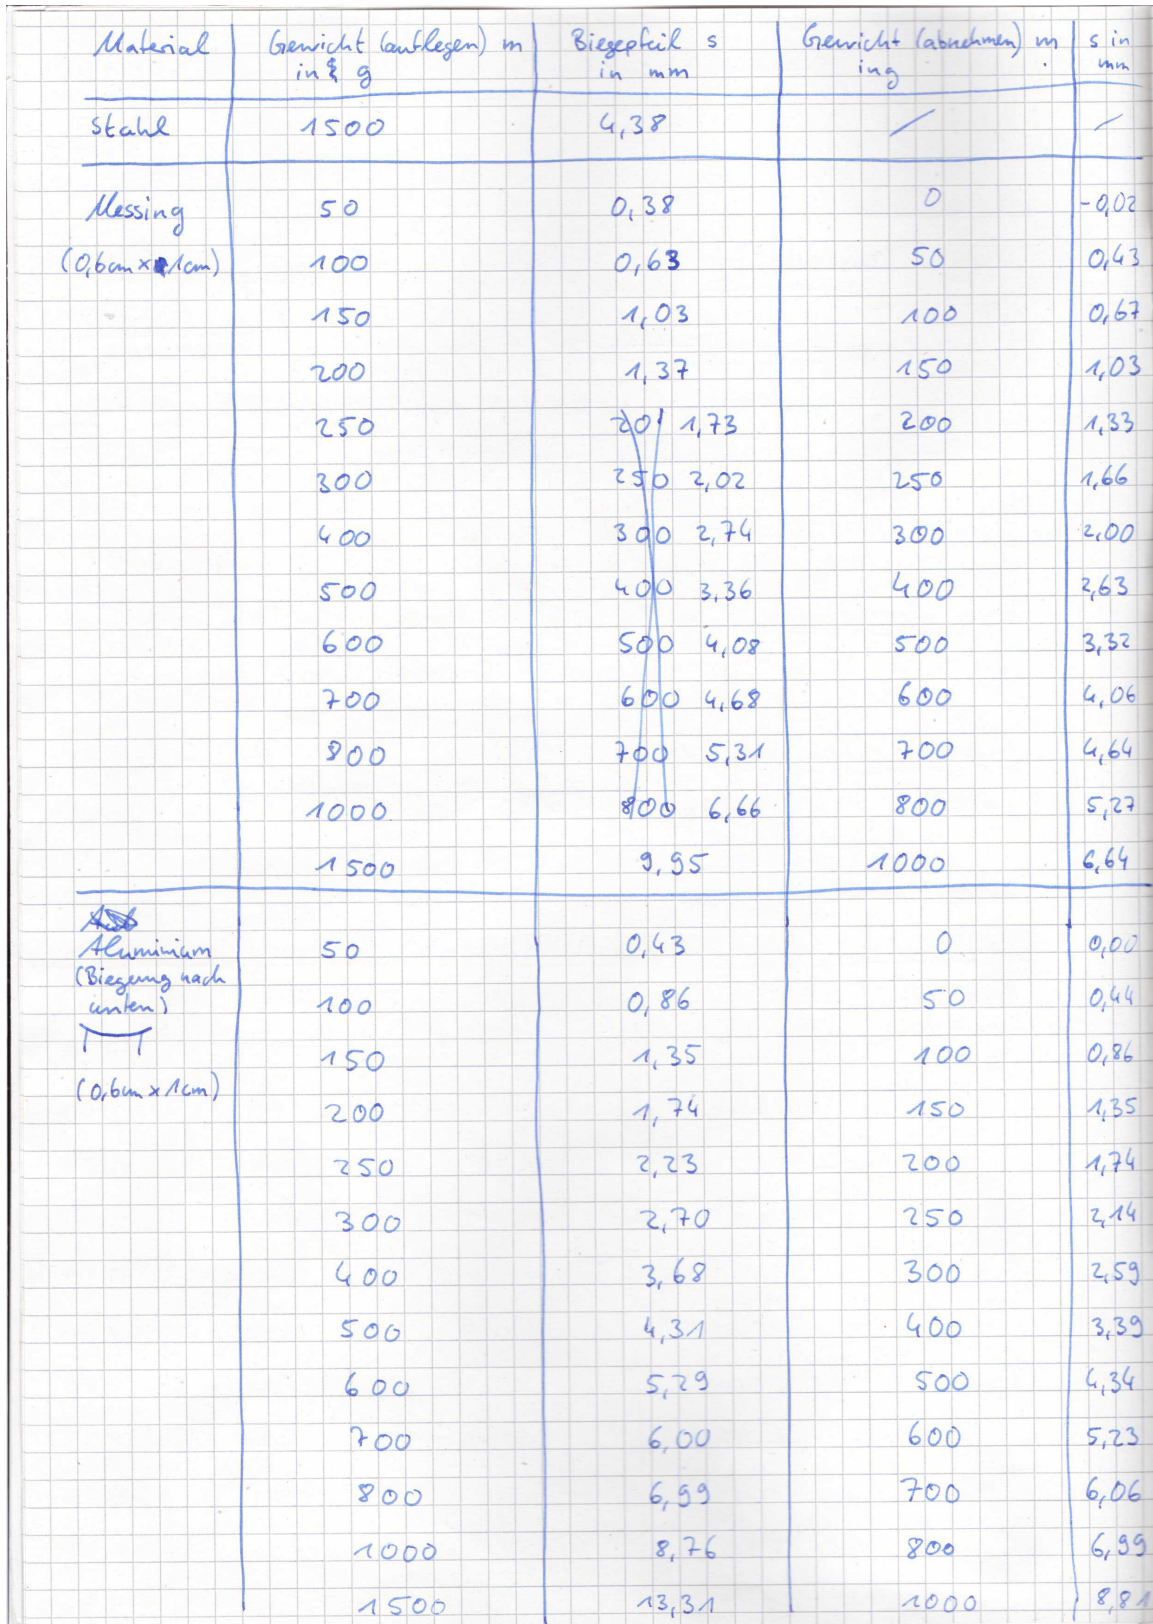 Material Gewicht (auflegen) m Biegepfeil s Gewicht (abnehmen) m s in
in g in mm in g mm
Stahl 1500 4,38 / /
Messing 50 0,38 0 -0,02
(0,6cm x 1cm) 100 0,63 50 0,43
150 1,03 100 0,67
200 1,37 150 1,03
250 201 1,73 200 1,33
300 250 2,02 250 1,66
400 300 2,74 300 2,00
500 400 3,36 400 2,63
600 500 4,08 500 3,32
700 600 4,68 600 4,06
800 700 5,31 700 4,64
1000 800 6,66 800 5,27
1500 9,95 1000 6,64
Aluminium 50 0,43 0 0,00
(Biegung nach
unten) 100 0,86 50 0,44
150 1,35 100 0,86
(0,6cm x 1cm)
200 1,74 150 1,35
250 2,23 200 1,74
300 2,70 250 2,14
400 3,68 300 2,59
500 4,31 400 3,39
600 5,29 500 4,34
700 6,00 600 5,23
800 6,99 700 6,06
1000 8,76 800 6,99
1500 13,31 1000 8,81